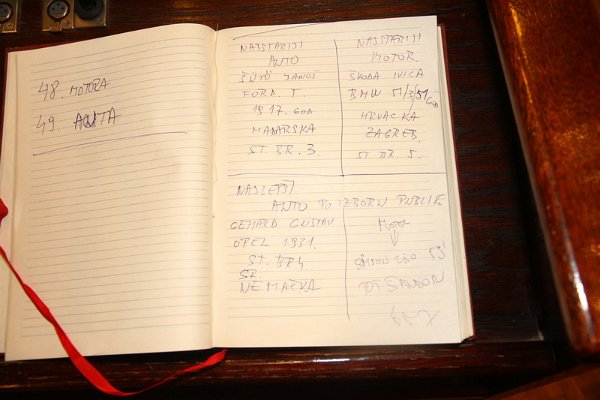 48. MOTORA
49. AUTA
NAJSTARIJI
AUTO
ŠÜTŐ JANOS
FORD. T.
1917. GOD
MAĐARSKA
ST. BR. 3.
NAJSTARIJI
MOTOR.
ŠKODA IVICA
BMW 51/3/51 GOD
HRVACKA
ZAGREB.
ST. BR. 5.
NAJLEPŠI
AUTO PO IZBORU PUBLIKE
GEHARD GUSTAV
OPEL 1931.
ST. BR 4
SR.
NEMAČKA
MOTOR
250 53